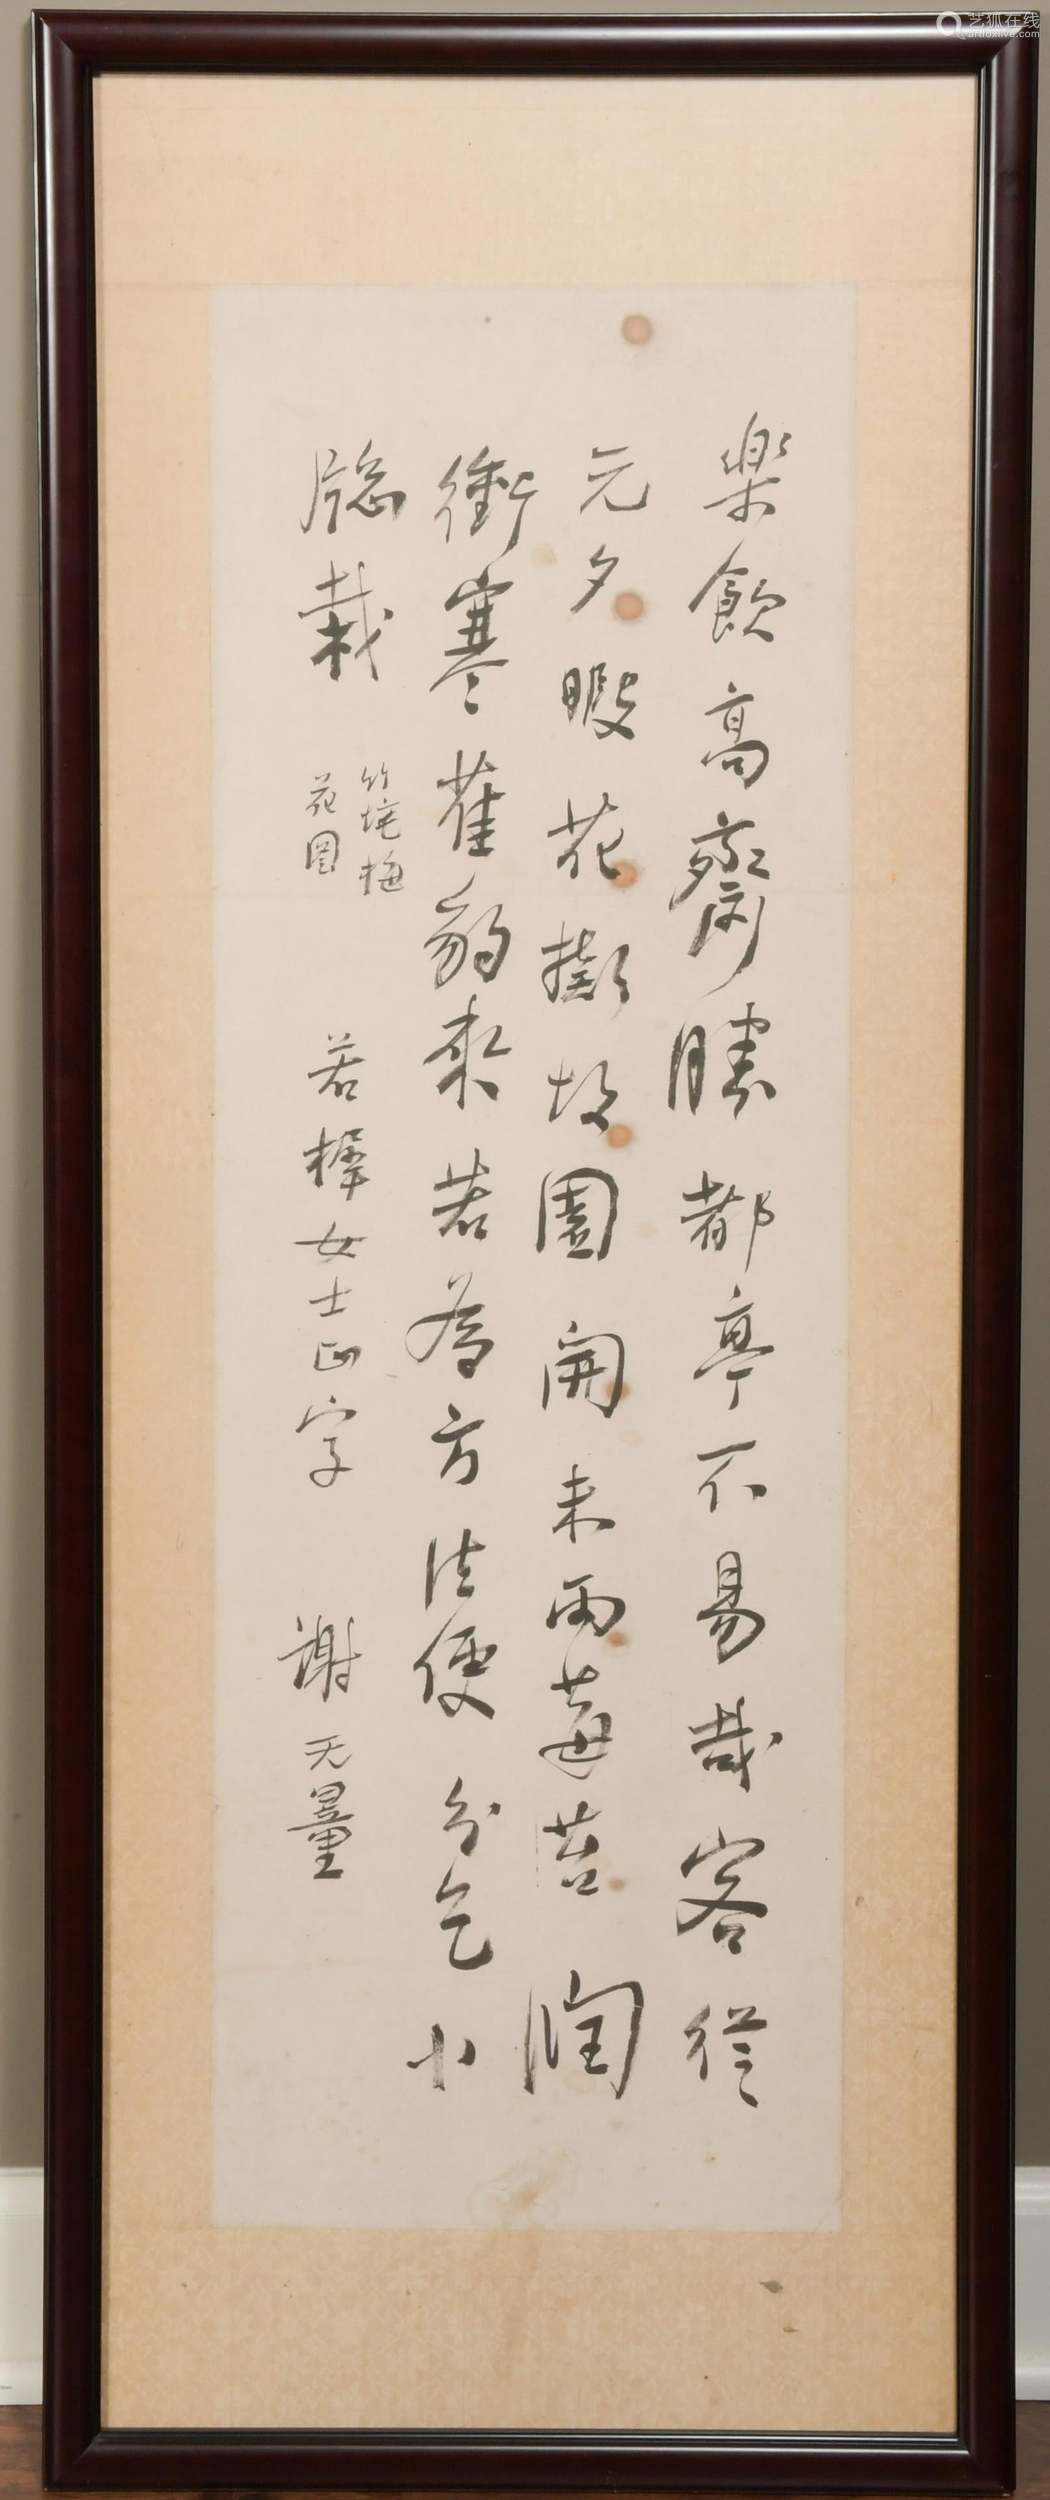 樂飲高齋勝都亭不易哉客從
元夕暇花撤故園開未雨莓苔潤
衝寒雀豹來若為方法便分乞小
牕栽
竹垞梅
花圖
若樨女士正字
謝无量
艺狐在线
artfoxlive.com